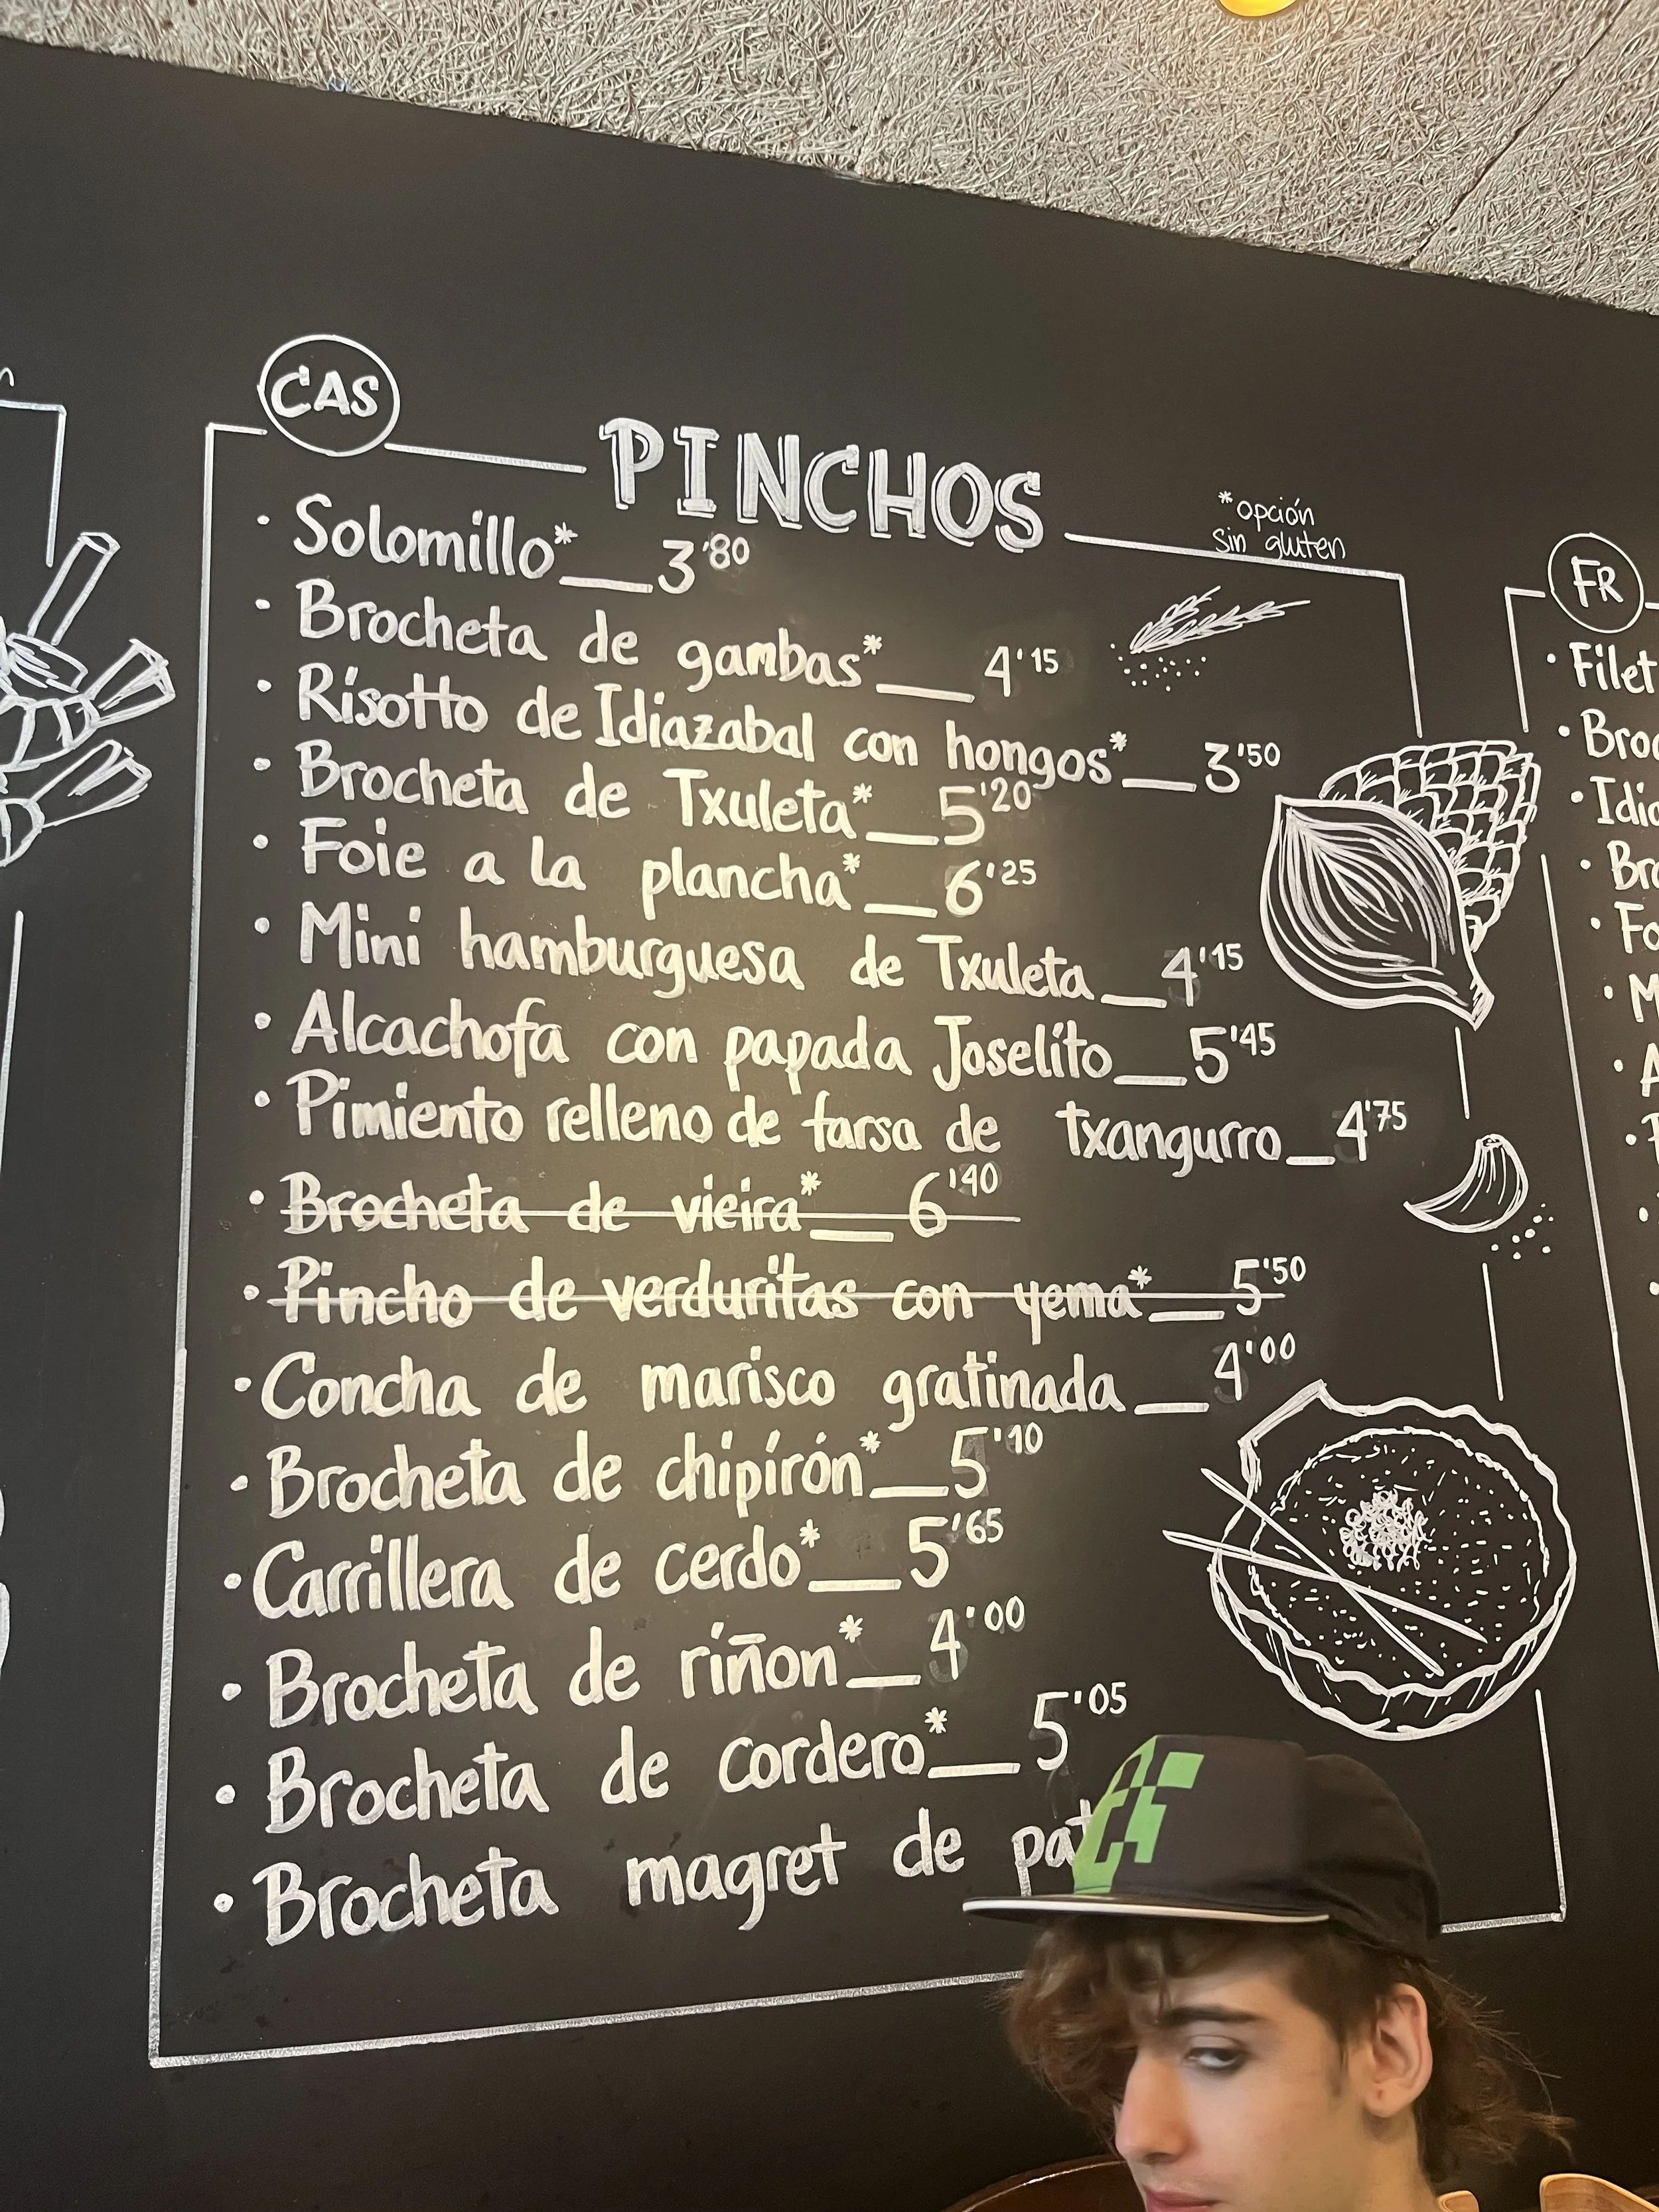 CAS
PINCHOS
*opción
sin gluten
· Solomillo*__3'80
· Brocheta de gambas*__4'15
· Risotto de Idiazabal con hongos*__3'50
· Brocheta de Txuleta*__5'20
· Foie a la plancha*__6'25
· Mini hamburguesa de Txuleta__4'15
· Alcachofa con papada Joselito__5'45
· Pimiento relleno de farsa de txangurro__4'75
· Brocheta de vieira*__6'40
· Pincho de verduritas con yema*__5'50
· Concha de marisco gratinada__4'00
· Brocheta de chipirón*__5'10
· Carrillera de cerdo*__5'65
· Brocheta de riñon*__4'00
· Brocheta de cordero*__5'05
· Brocheta magret de pat
FR
· Filet
· Broc
· Idia
· Bro
· Fo
· M
· A